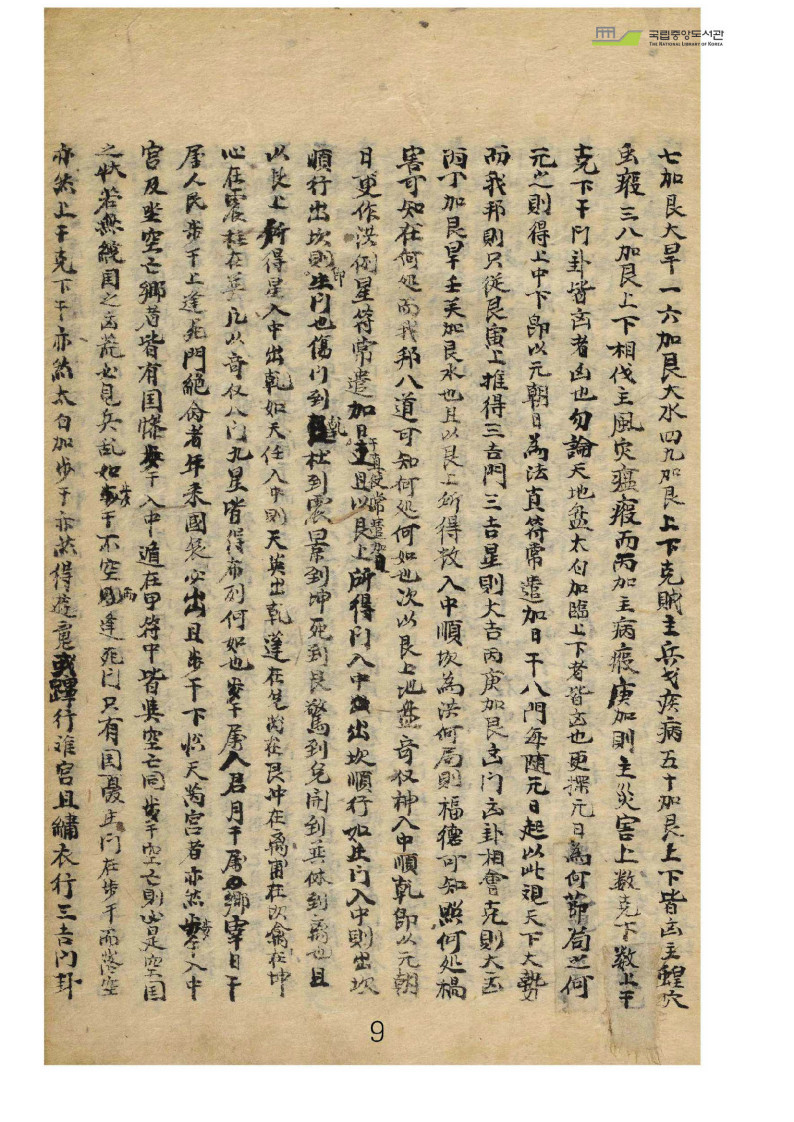 국립중앙도서관
THE NATIONAL LIBRARY OF KOREA
七加艮大旱一六加艮大水四九加艮上下克賊主兵戈疾病五十加艮上下皆凶主蝗穴
虫瘕三八加艮上下相伐主風灾瘟瘕而丙加主病瘕庚加則主災害上数克下数上干
克下干门卦皆凶者凶也勿論天地盆太白加臨上下者皆凶也更探元日為何節荀之何
元之則得上中下即以元朝日為法直符常遣加日干八門每随元日起以此視天下大勢
而我邦則只従艮寅上推得三吉門三吉星則大吉丙庚加艮凶门凶卦相會克則大凶
丙丁加艮旱壬癸加艮水也且以艮上所得数入中順坎為洪何局則福德可知照何処禍
害可知在何処而我邦八道可知何処何如也次以艮上地盘奇仅神入中順乾即以元朝
日更作洪例星符常遣加日干直使常遣加且以艮上所得门入中出坎順行如生门入中則出坎
順行出坎則生门也傷门到乾杜到震景到坤死到艮驚到兌開到巽休到离也且
以艮上所得星入中出乾如天任入中則天英出乾蓬在兌芮在艮冲在离甫在坎禽在坤
心在震柱在巽凡以奇仅八门九星皆得布列何如也歩干属人君月干属鄉宰日干
属人民歩干上逢死門絶命者年来國喪必出且歩干下临天芮宮者亦然歩干入中
宮及坐空亡鄉者皆有国喪歩干入中遁在甲符中皆與空亡同歩干空亡則此是空国
之状若無喪国之凶荒必見兵乱如歩干不空而逢死门只有国憂生门在歩干而落空
亦然上干克下干亦然太白加歩干亦然得蓬行难宮且繡衣行三吉门卦
9